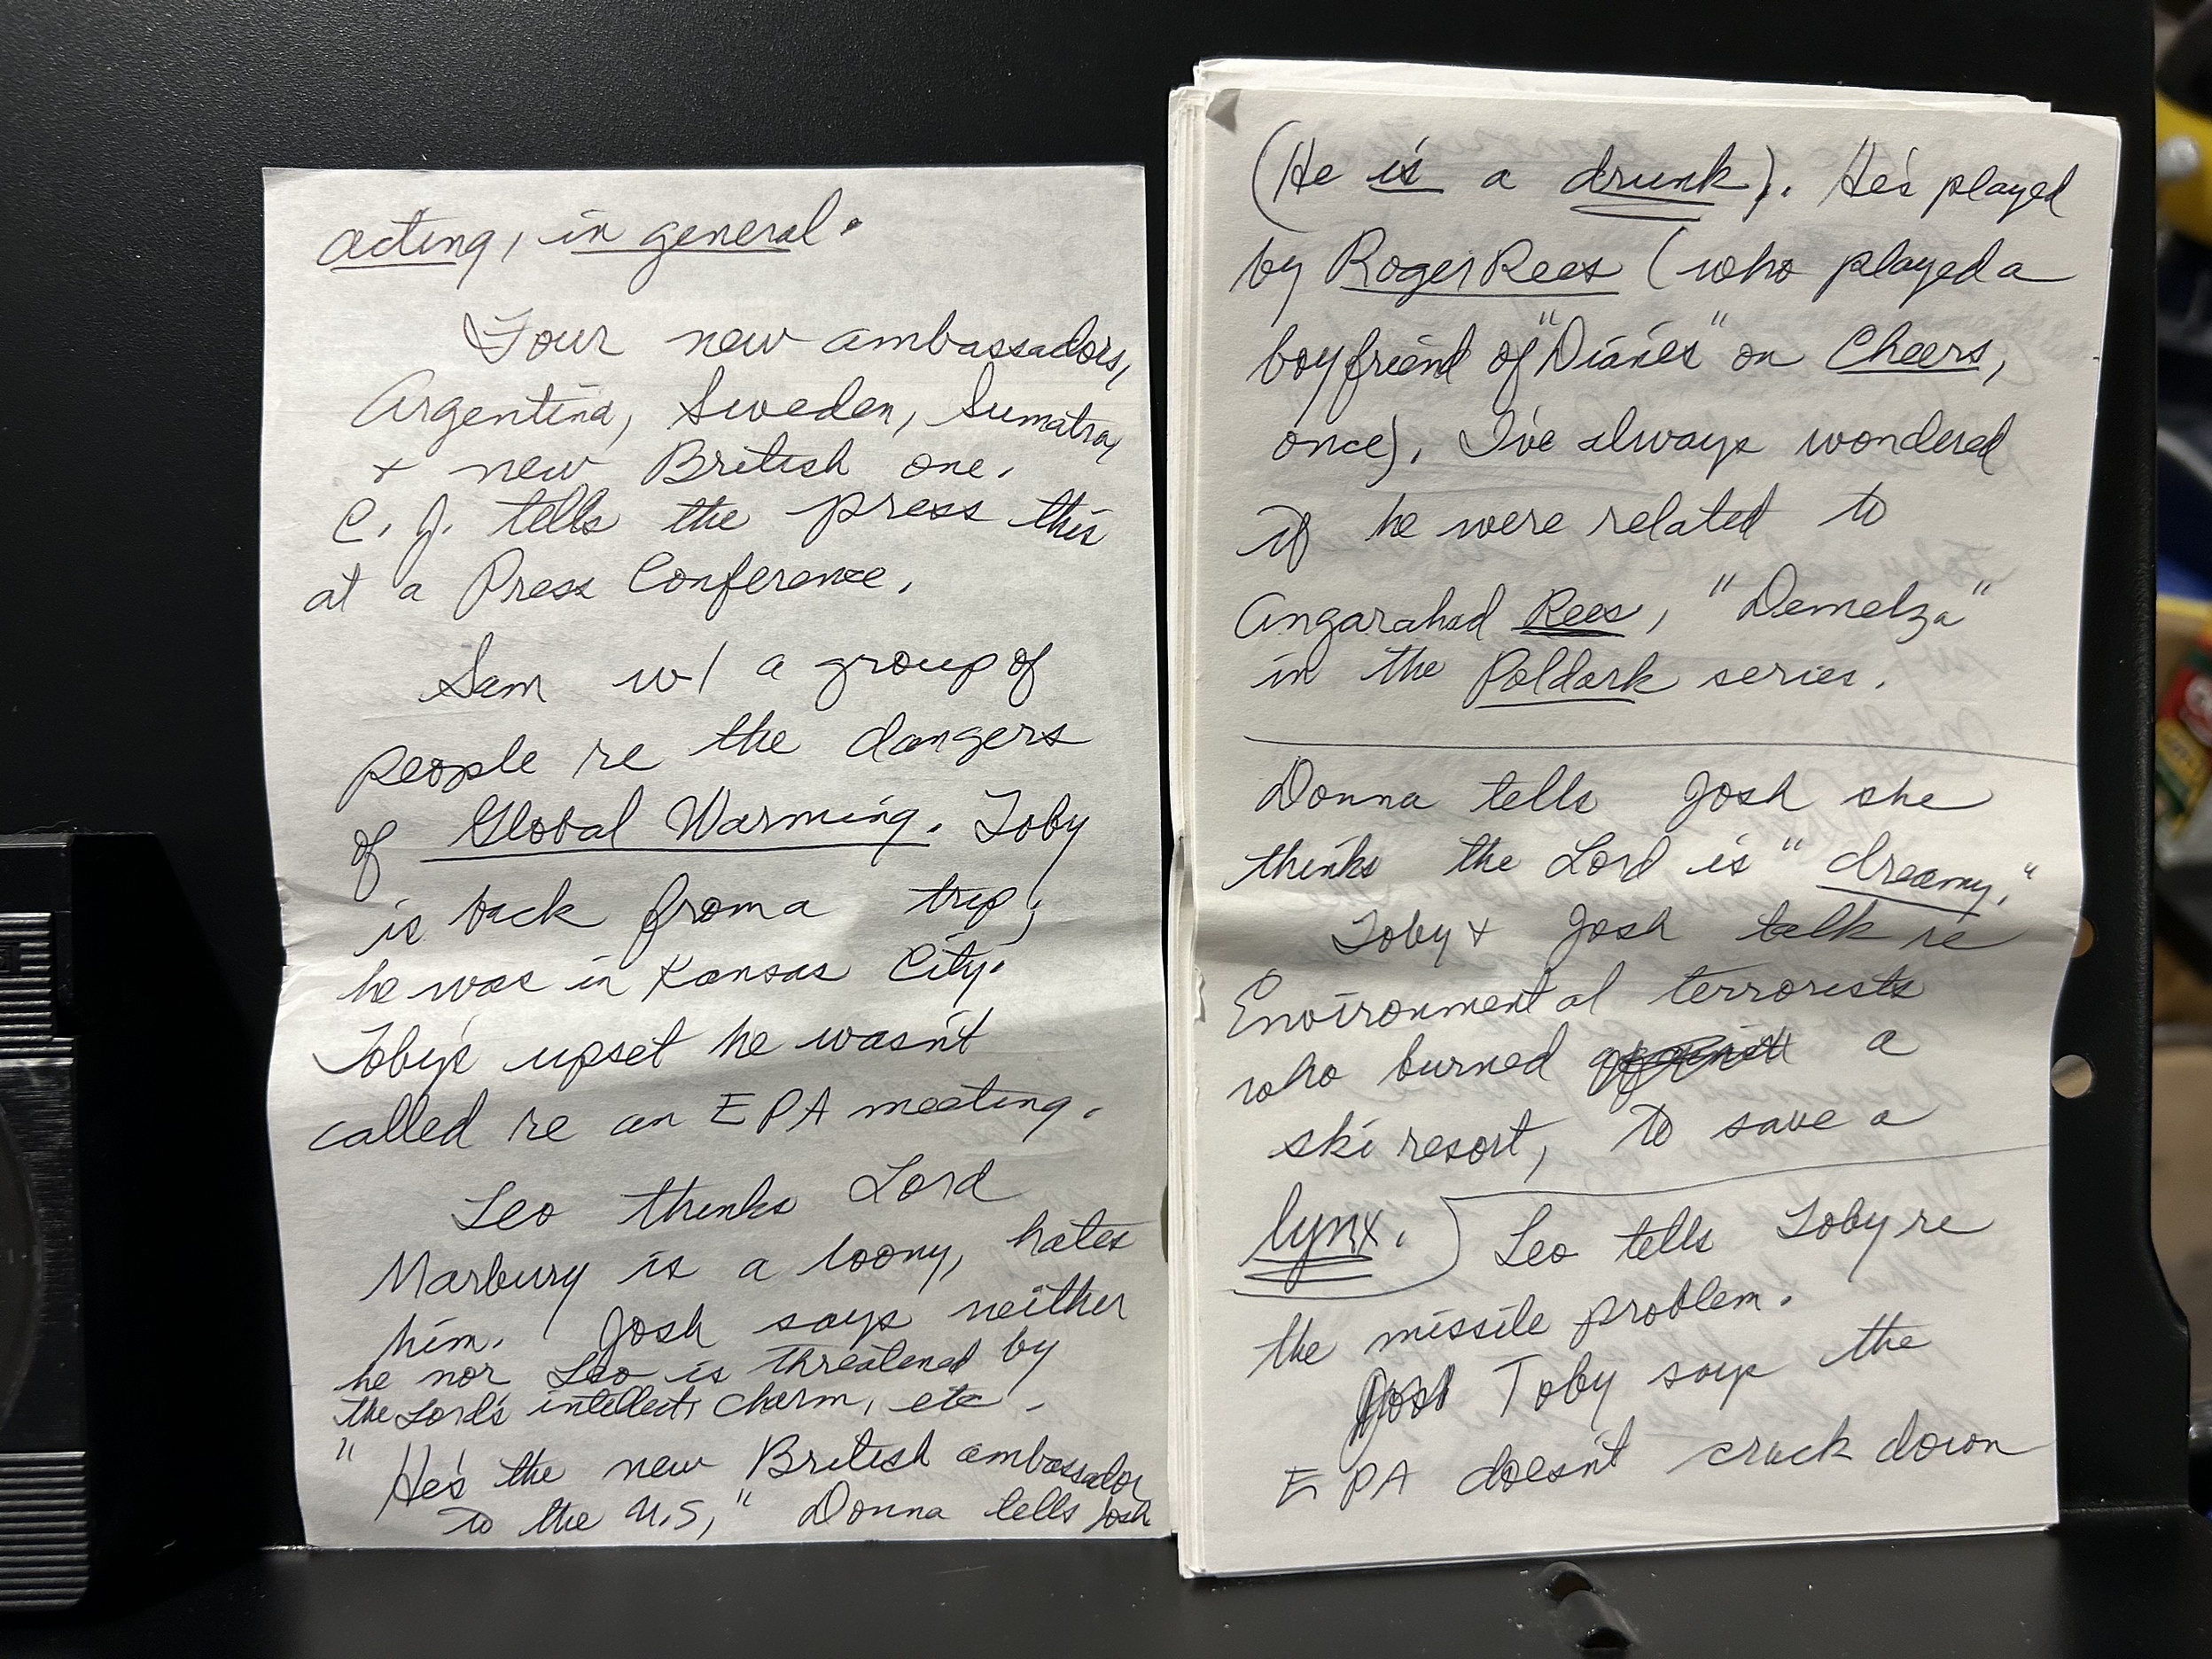 acting, in general.
Four new ambassadors,
Argentina, Sweden, Sumatra,
+ new British one.
C. J. tells the press this
at a Press Conference.
Sam w/ a group of
people re the dangers
of Global Warming. Toby
is back from a trip;
he was in Kansas City.
Toby's upset he wasn't
called re an EPA meeting.
Leo thinks Lord
Marbury is a loony, hates
him. Josh says neither
he nor Leo is threatened by
the Lord's intellect, charm, etc.
" He's the new British ambassador
to the U.S," Donna tells Josh
(He is a drunk). He's played
by Roger Rees (who played a
boyfriend of "Diane's" on Cheers,
once). I've always wondered
if he were related to
Angarahad Rees, "Demelza"
in the Poldark series.
Donna tells Josh she
thinks the Lord is "dreamy."
Toby + Josh talk re
Environmental terrorists
who burned a
ski resort, to save a
lynx. Leo tells Toby re
the missile problem.
Toby says the
EPA doesn't crack down